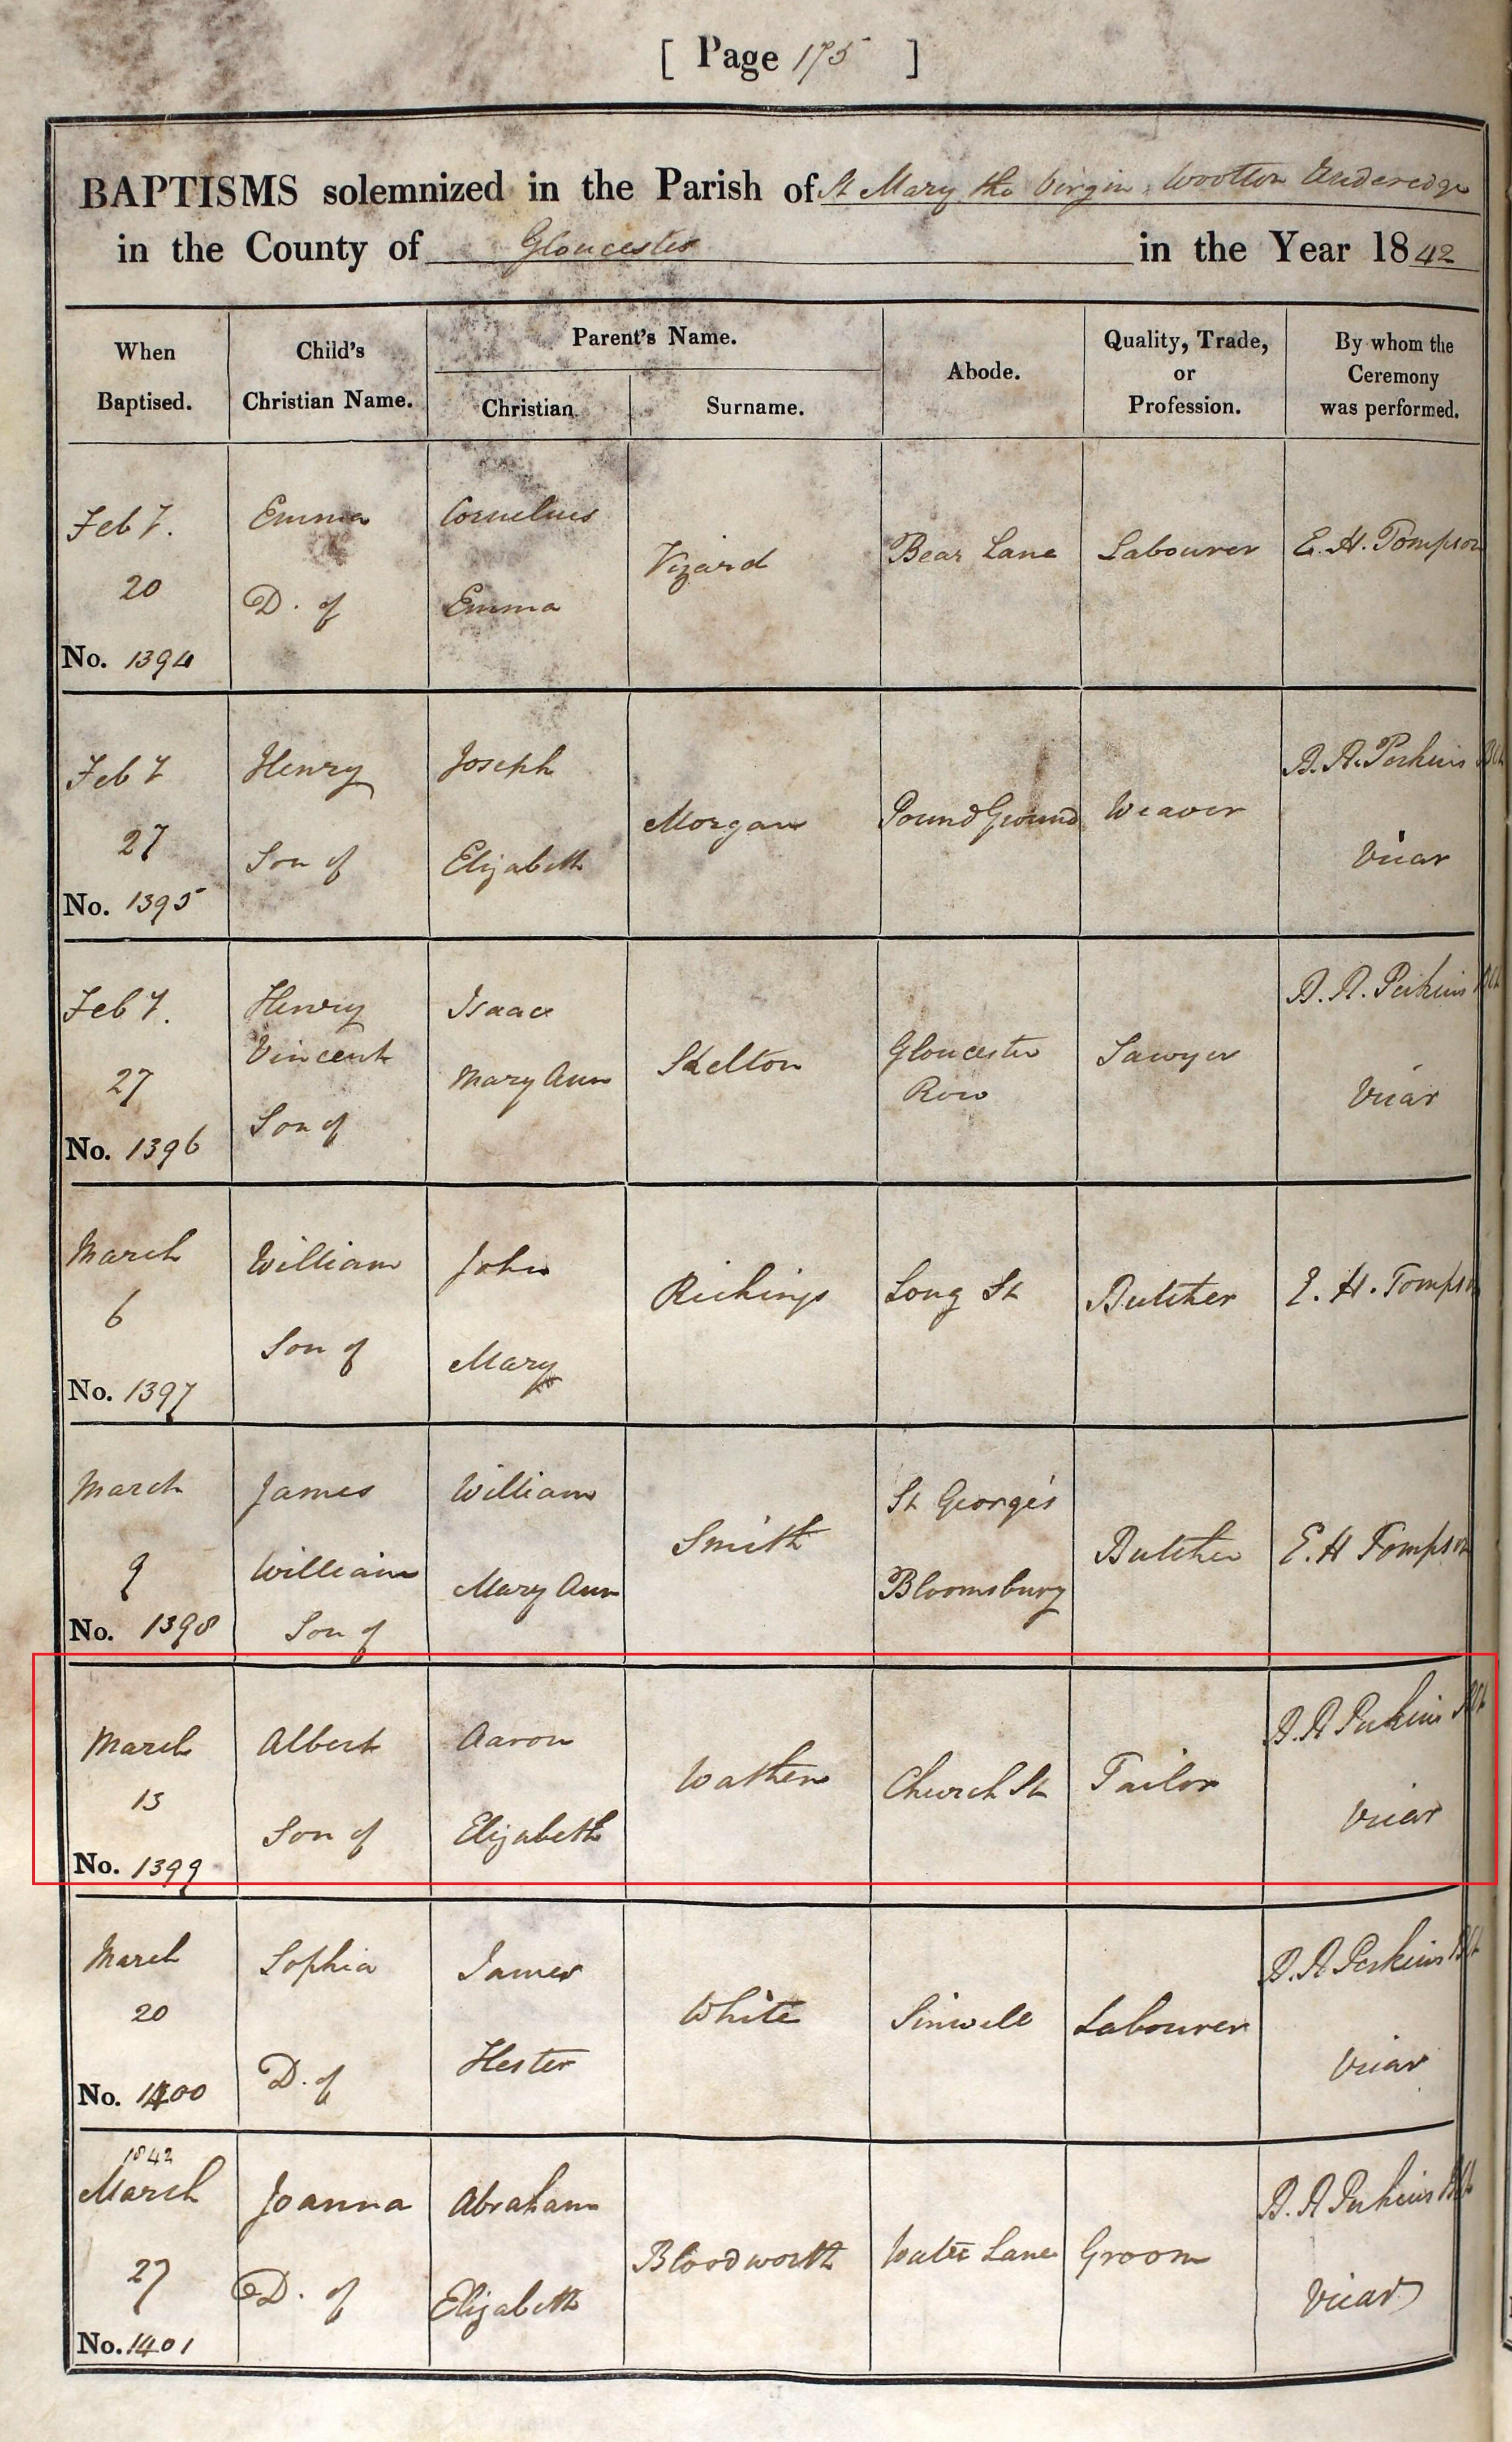 [ Page 175 ]
BAPTISMS solemnized in the Parish of St Mary the Virgin Wootton Underedge
in the County of Gloucester in the Year 1842
When Baptised.
Child's Christian Name.
Parent's Name.
Christian
Surname.
Abode.
Quality, Trade, or Profession.
By whom the Ceremony was performed.
Feb 7. Emma Cornelius
Vizard Bear Lane Labourer E. H. Tompson
20 D. of Emma
No. 1394
Feb 7 Henry Joseph B. R. Perkins
Morgan Pound Ground Weaver
27 Son of Elizabeth Vicar
No. 1395
Feb 7. Henry Isaac B. R. Perkins
Vincent Mary Ann Skelton Gloucester Sawyer
Row
27 Son of Vicar
No. 1396
March William John
Richings Long St Butcher E. H. Tompson
6 Son of Mary
No. 1397
March James William St George's
Smith Butcher E. H Tompson
9 William Mary Ann Bloomsbury
No. 1398 Son of
March Albert Aaron B. R Perkins
Wathen Church St Tailor
13 Son of Elizabeth Vicar
No. 1399
March Sophia James B. R Perkins
20 White Sinwell Labourer
D. of Hester Vicar
No. 1400
1842
March Joanna Abraham B. R Perkins
Bloodworth Water Lane Groom
27 D. of Elizabeth Vicar
No. 1401